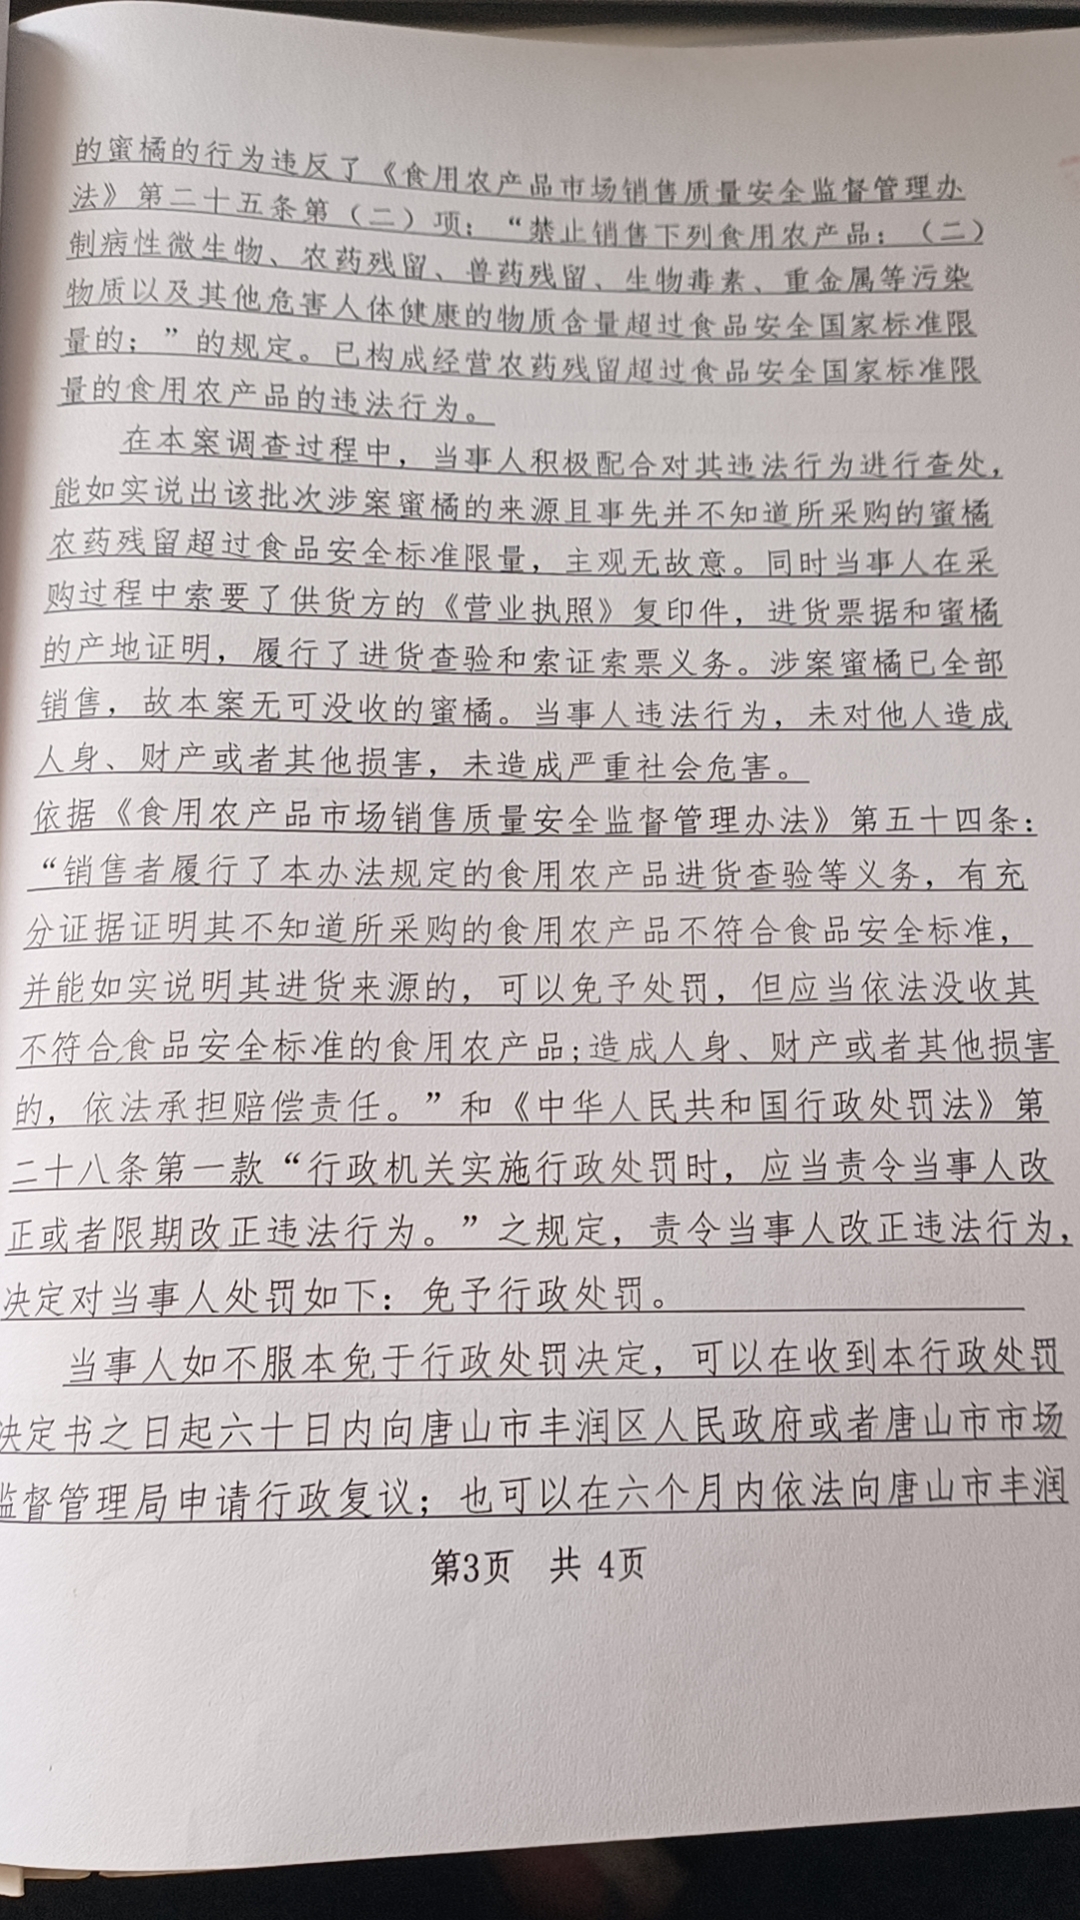 的蜜橘的行为违反了《食用农产品市场销售质量安全监督管理办
法》第二十五条第（二）项：“禁止销售下列食用农产品：（二）
制病性微生物、农药残留、兽药残留、生物毒素、重金属等污染
物质以及其他危害人体健康的物质含量超过食品安全国家标准限
量的；”的规定。已构成经营农药残留超过食品安全国家标准限
量的食用农产品的违法行为。
在本案调查过程中，当事人积极配合对其违法行为进行查处，
能如实说出该批次涉案蜜橘的来源且事先并不知道所采购的蜜橘
农药残留超过食品安全标准限量，主观无故意。同时当事人在采
购过程中索要了供货方的《营业执照》复印件，进货票据和蜜橘
的产地证明，履行了进货查验和索证索票义务。涉案蜜橘已全部
销售，故本案无可没收的蜜橘。当事人违法行为，未对他人造成
人身、财产或者其他损害，未造成严重社会危害。
依据《食用农产品市场销售质量安全监督管理办法》第五十四条：
“销售者履行了本办法规定的食用农产品进货查验等义务，有充
分证据证明其不知道所采购的食用农产品不符合食品安全标准，
并能如实说明其进货来源的，可以免予处罚，但应当依法没收其
不符合食品安全标准的食用农产品;造成人身、财产或者其他损害
的，依法承担赔偿责任。”和《中华人民共和国行政处罚法》第
二十八条第一款“行政机关实施行政处罚时，应当责令当事人改
正或者限期改正违法行为。”之规定，责令当事人改正违法行为，
决定对当事人处罚如下：免予行政处罚。
当事人如不服本免于行政处罚决定，可以在收到本行政处罚
决定书之日起六十日内向唐山市丰润区人民政府或者唐山市市场
监督管理局申请行政复议；也可以在六个月内依法向唐山市丰润
第3页 共 4页